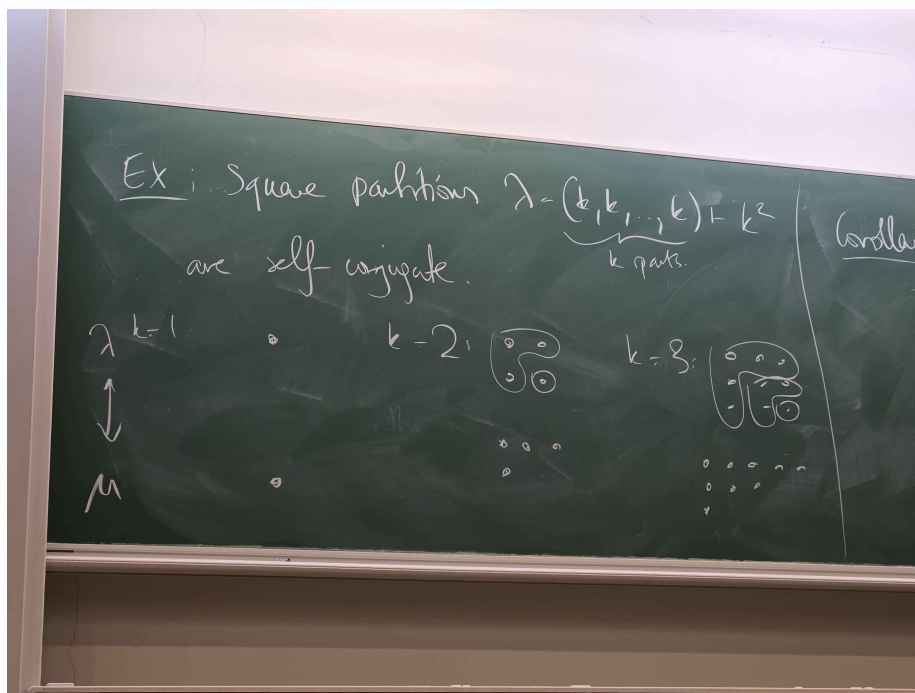 Ex: Square partitions λ = (k, k, ..., k) ⊢ k²
k parts.
are self-conjugate.
λ k=1 k=2: k=3:
μ